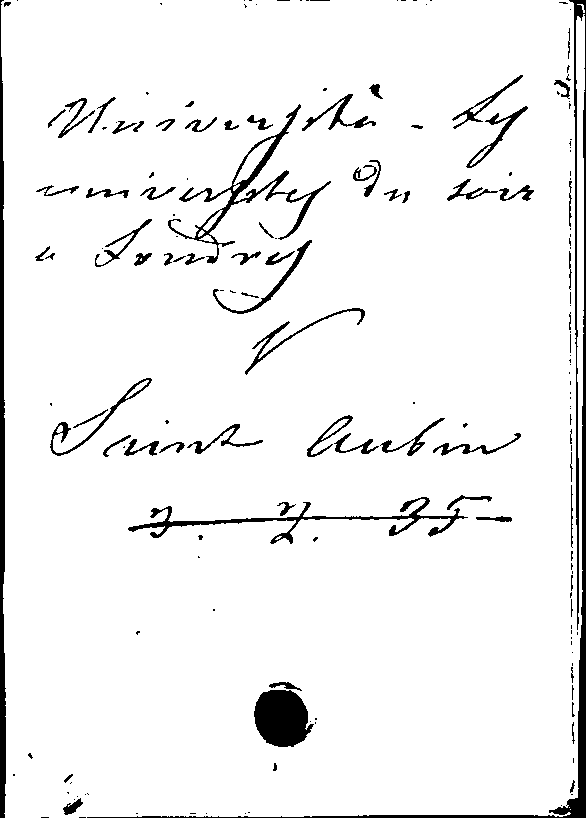 Université - Les
universités du soir
a Londres
V
Saint Aubin
3. 2. 35